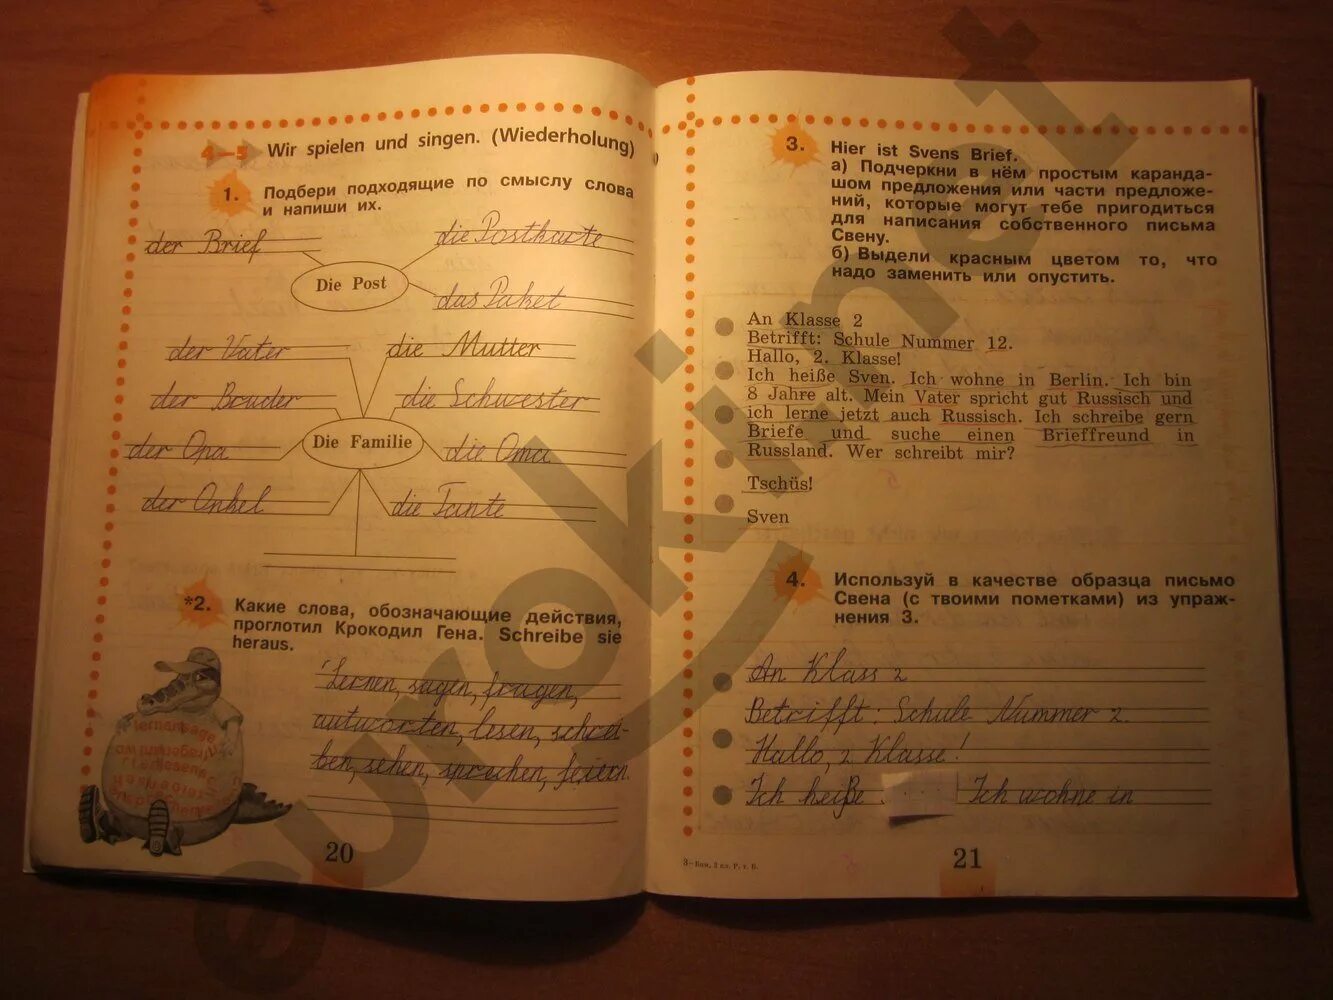 4–5 Wir spielen und singen. (Wiederholung)
1. Подбери подходящие по смыслу слова
и напиши их.
der Brief
die Postkarte
Die Post
das Paket
der Vater
die Mutter
der Bruder
die Schwester
der Opa
Die Familie
die Oma
der Onkel
die Tante
*2. Какие слова, обозначающие действия,
проглотил Крокодил Гена. Schreibe sie
heraus.
Lernen, sagen, fragen,
antworten, lesen, schrei-
ben, sehen, sprechen, feiern.
20
3. Hier ist Svens Brief.
а) Подчеркни в нём простым каранда-
шом предложения или части предложе-
ний, которые могут тебе пригодиться
для написания собственного письма
Свену.
б) Выдели красным цветом то, что
надо заменить или опустить.
An Klasse 2
Betrifft: Schule Nummer 12.
Hallo, 2. Klasse!
Ich heiße Sven. Ich wohne in Berlin. Ich bin
8 Jahre alt. Mein Vater spricht gut Russisch und
ich lerne jetzt auch Russisch. Ich schreibe gern
Briefe und suche einen Brieffreund in
Russland. Wer schreibt mir?
Tschüs!
Sven
4. Используй в качестве образца письмо
Свена (с твоими пометками) из упраж-
нения 3.
An Klass 2
Betrifft: Schule Nummer 2.
Hallo, 2 Klasse!
Ich heiße Ich wohne in
3–Бим, 2 кл. Р. т. Б.
21
euroki.net